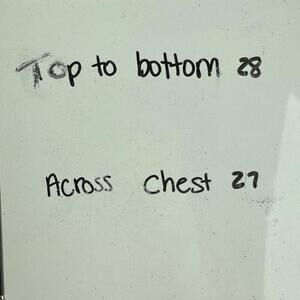 Top to bottom 28
Across chest 27